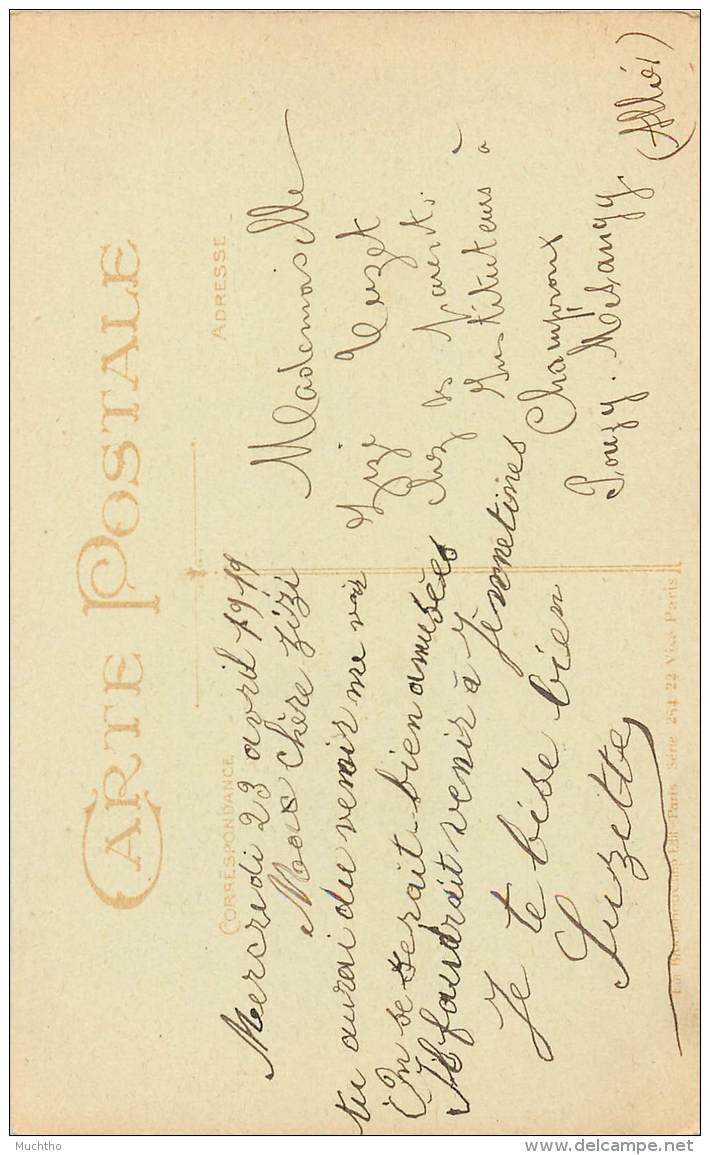 CARTE POSTALE
CORRESPONDANCE
Mercredi 23 avril 1919
Ma chère Zizi
tu aurai du venir me voir
On se serait bien amusées
Il faudrait venir à Jennetines
Je te bise bien
Suzette
ADRESSE
Mademoiselle
Zizi
chez ses Parents
Instituteurs à
Champroux
Pouzy-Mésangy
(Allier)
Paris - Série 254 22 Visé Paris
Muchtho
www.delcampe.net